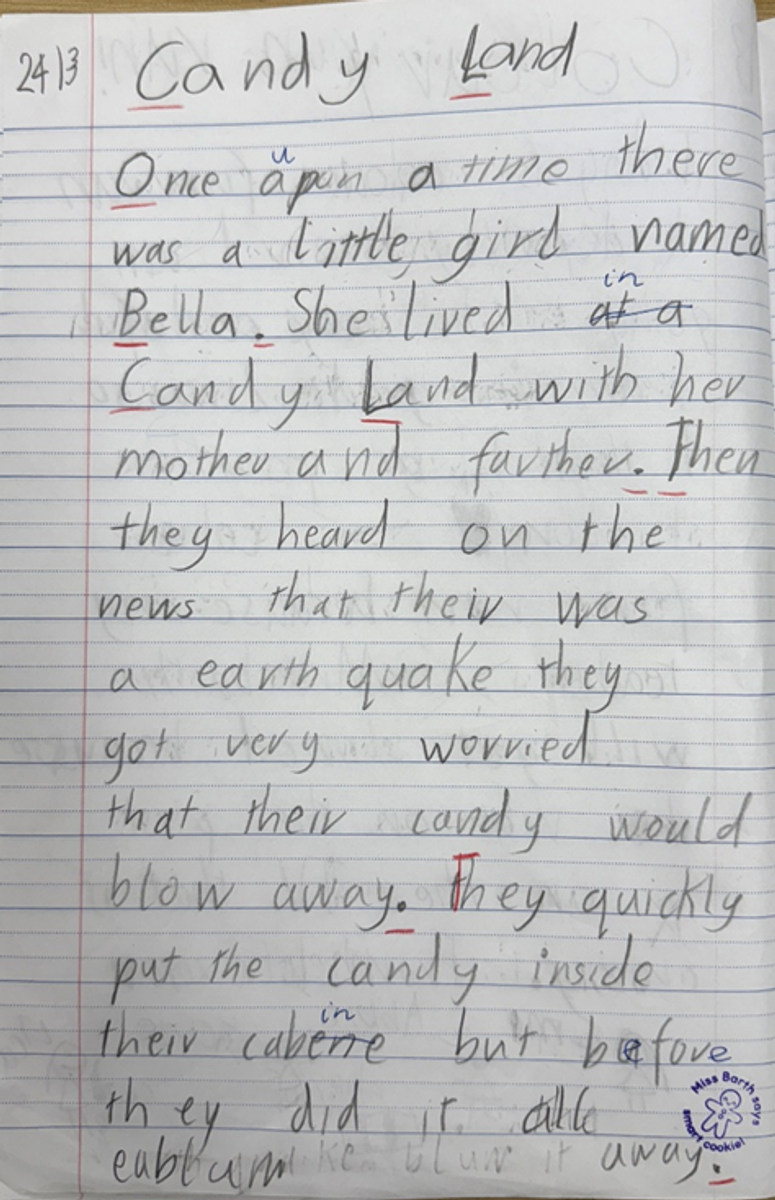 24/3 Candy Land
u
Once apon a time there
was a little girl named
in
Bella. She lived at a
Candy Land with her
mother and farther. Then
they heard on the
news that their was
a earth quake they
got very worried
that their candy would
blow away. They quickly
put the candy inside
in
their cabene but before
they did it all
away.
Miss Barth says
smart cookie!